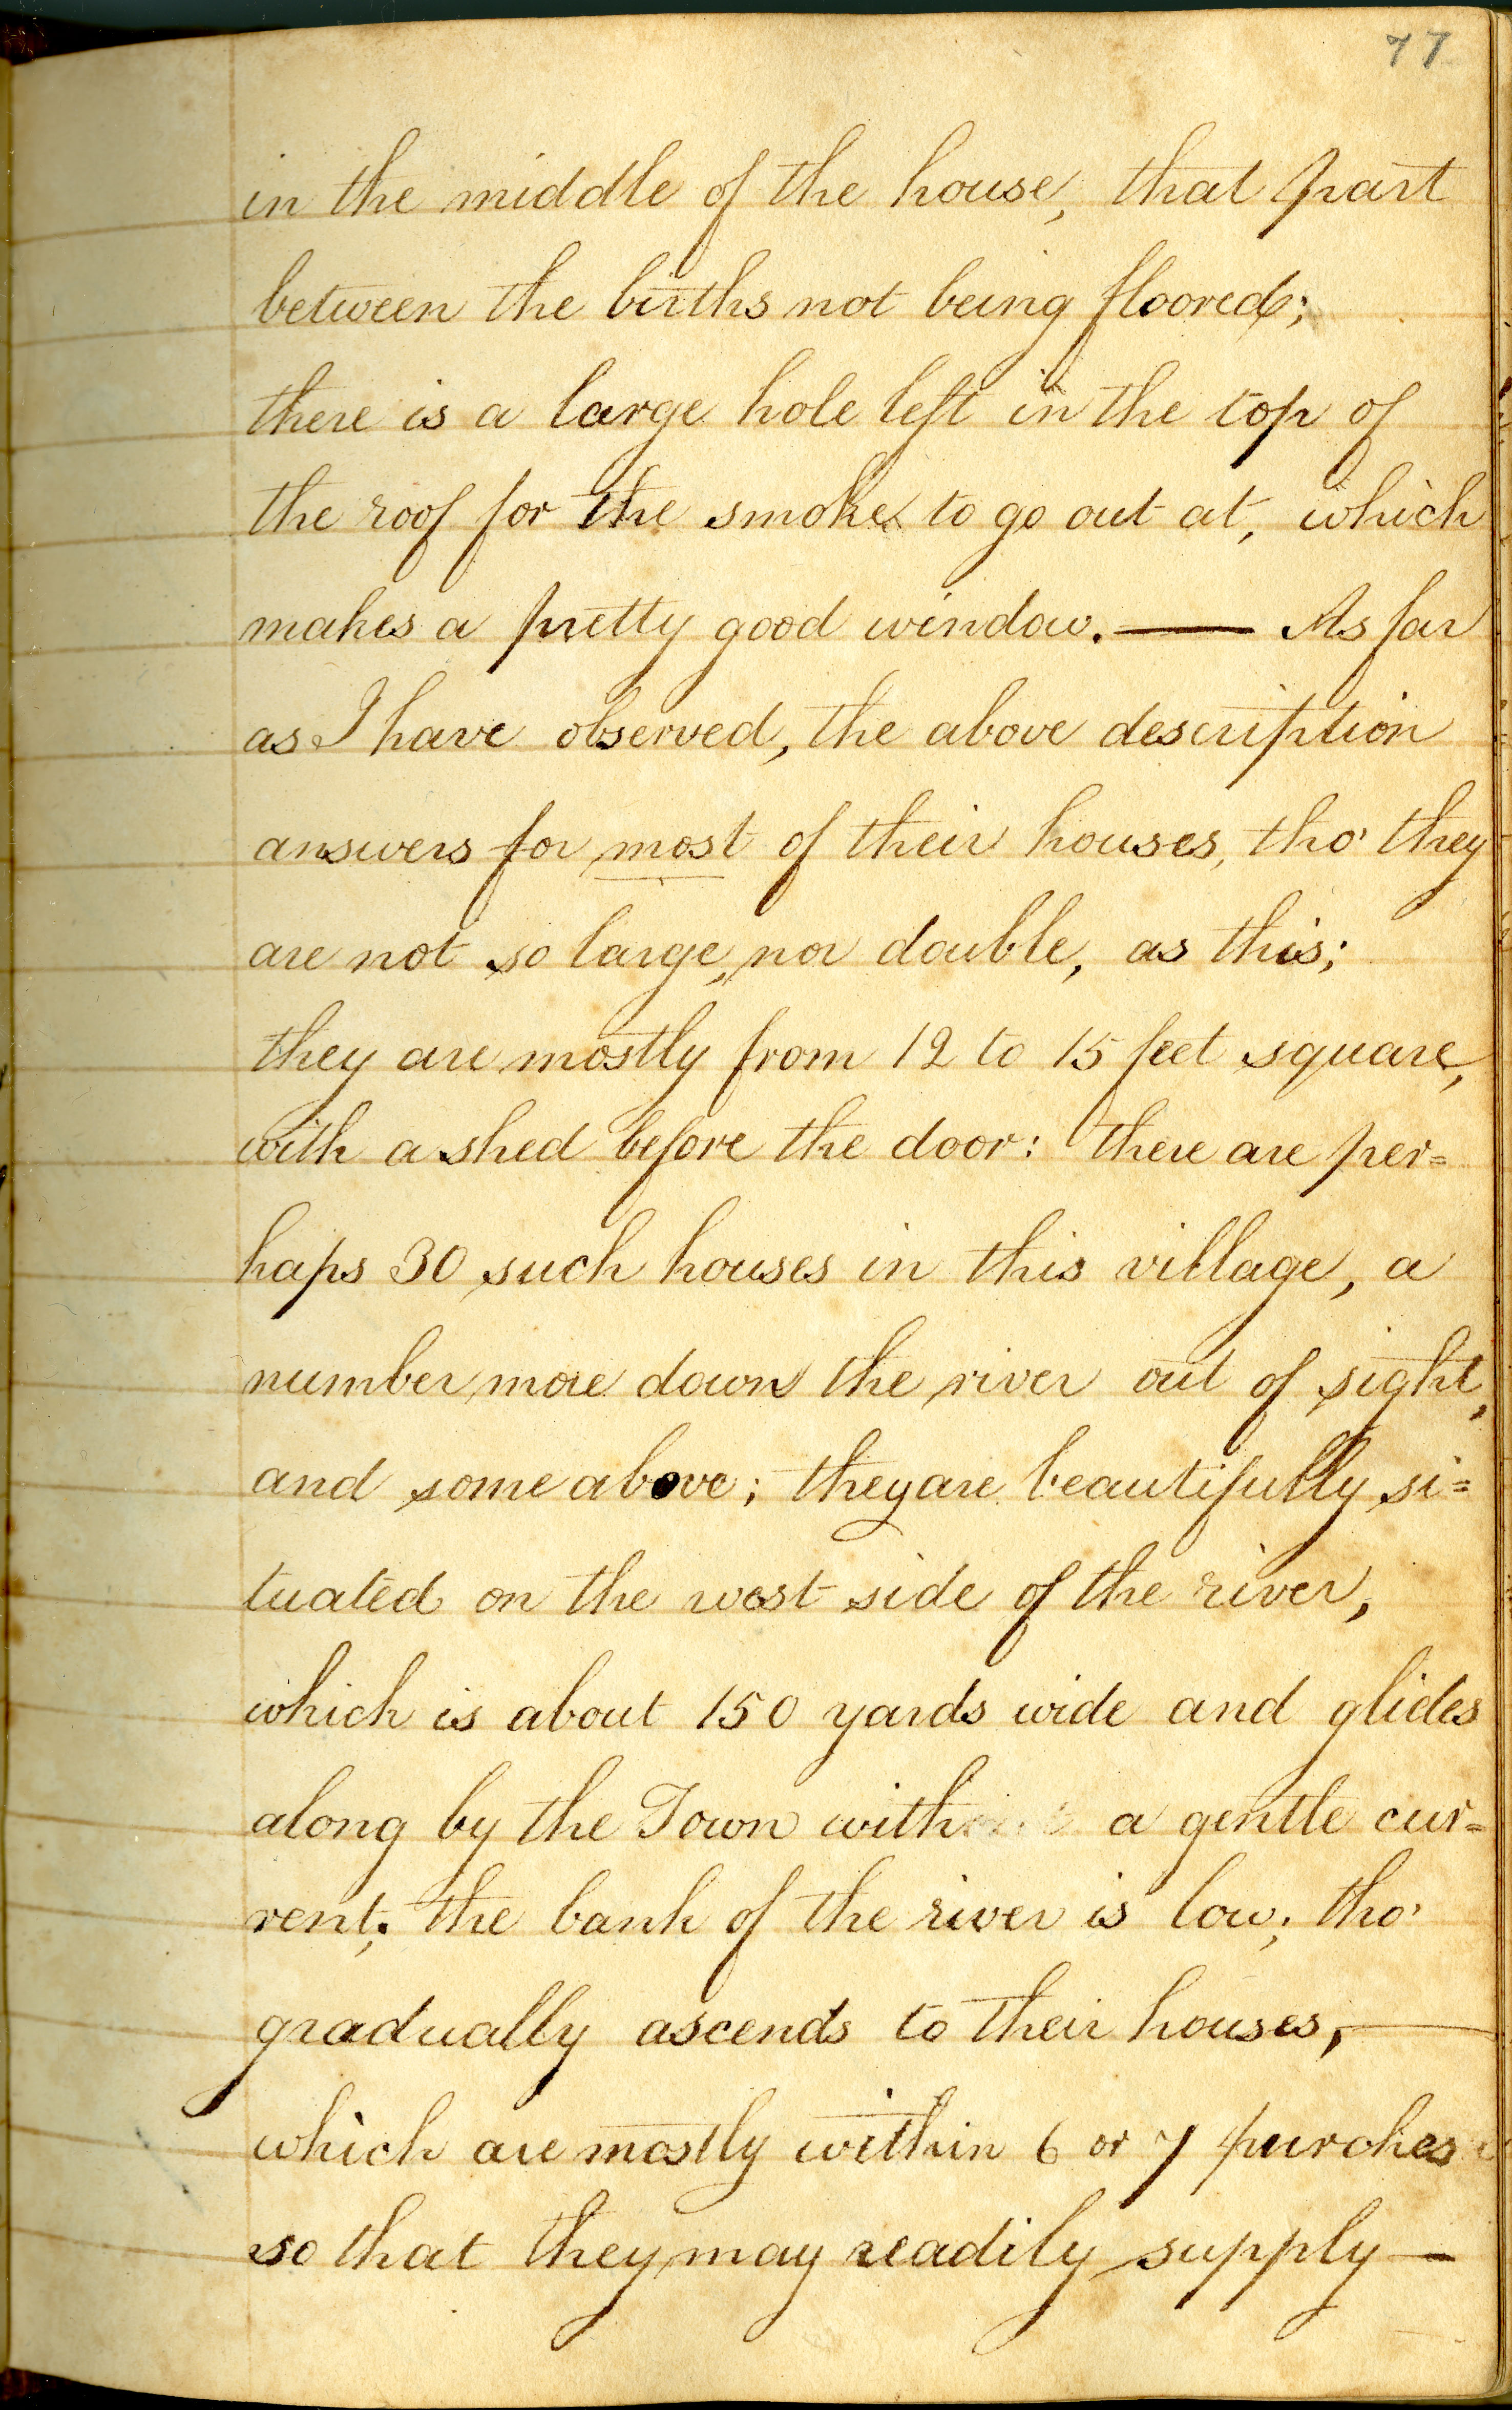 77
in the middle of the house, that part
between the births not being floored;
there is a large hole left in the top of
the roof for the smoke to go out at, which
makes a pretty good window. — As far
as I have observed, the above description
answers for most of their houses, tho' they
are not so large, nor double, as this;
they are mostly from 12 to 15 feet square,
with a shed before the door: there are per=
haps 30 such houses in this village, a
number more down the river out of sight,
and some above; they are beautifully si=
tuated on the west side of the river,
which is about 150 yards wide and glides
along by the Town with a gentle cur=
rent; the bank of the river is low; tho'
gradually ascends to their houses, —
which are mostly within 6 or 7 purches
so that they may readily supply —